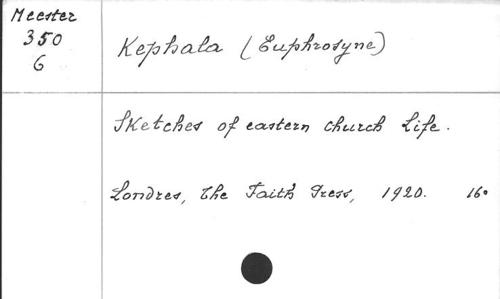 Meester
350
6
Kephala (Euphrosyne)
Sketches of eastern church Life.
Londres, The Faith Press, 1920. 16°